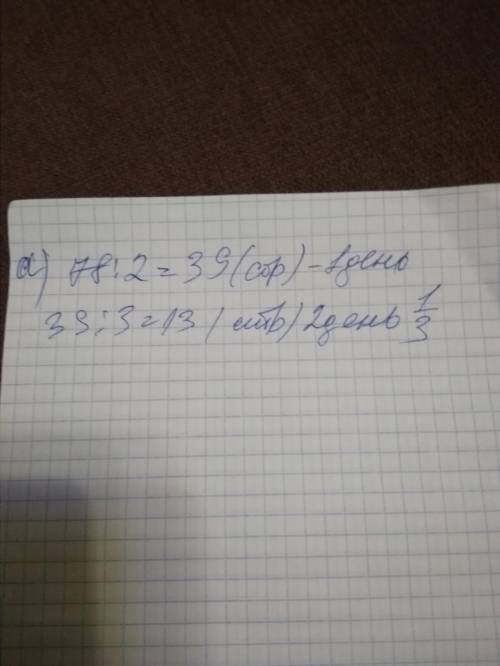 а) 78:2=39(стр)-1день
39:3=13(стр)2день 1/3